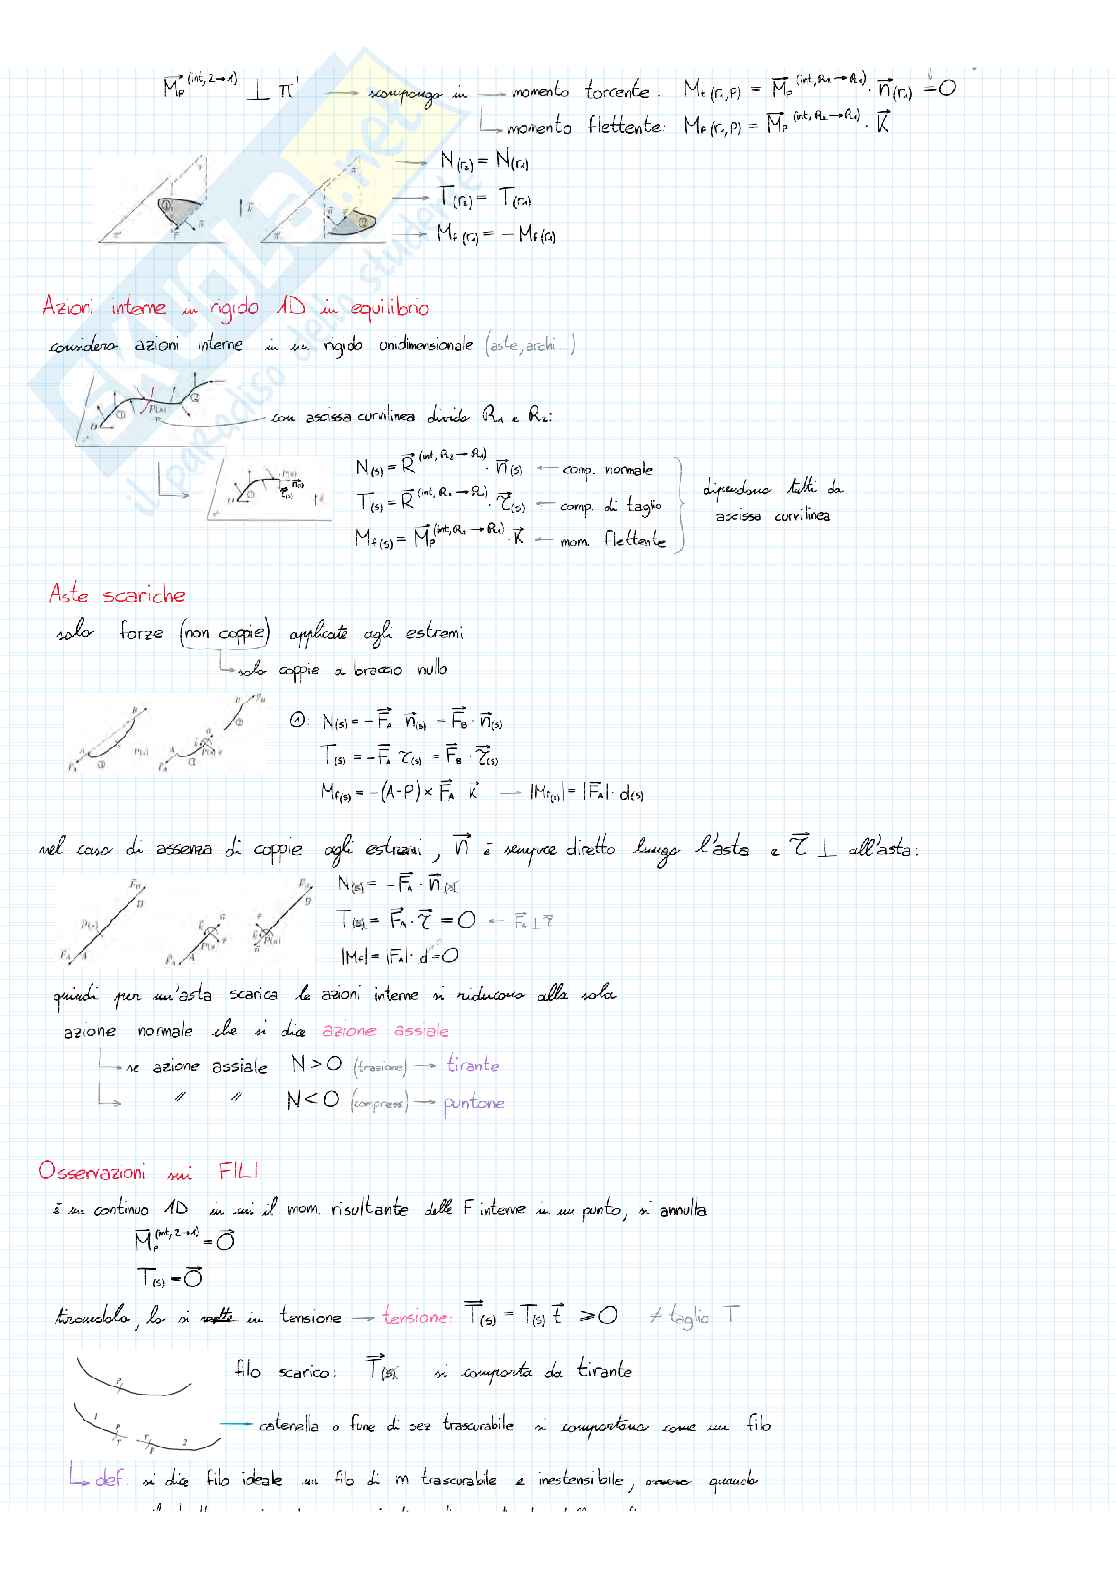 M⃗_P^(int, 2→1) ⊥ π' → scompongo in → momento torcente: M_t(r₁,P) = M⃗_P^(int, R₂→R₁) · n⃗(r₁) = 0
momento flettente: M_f(r₁,P) = M⃗_P^(int, R₂→R₁) · K⃗
→ N(r₂) = N(r₁)
→ T(r₂) = T(r₁)
→ M_f(r₂) = - M_f(r₁)
SKUOLA.net
il paradiso dello studente
Azioni interne in rigido 1D in equilibrio
considero azioni interne in un rigido unidimensionale (aste, archi...)
con ascissa curvilinea divido R₁ e R₂:
N(s) = R⃗^(int, R₂→R₁) · n⃗(s) ← comp. normale
T(s) = R⃗^(int, R₂→R₁) · τ⃗(s) ← comp. di taglio
M_f(s) = M⃗_P^(int, R₂→R₁) · K⃗ ← mom. flettente
dipendono tutti da
ascissa curvilinea
Aste scariche
solo forze (non coppie) applicate agli estremi
solo coppie a braccio nullo
①: N(s) = -F⃗_A n⃗(s) - F⃗_B · n⃗(s)
T(s) = -F⃗_A τ(s) = F⃗_B · τ⃗(s)
M_f(s) = -(A-P) × F⃗_A K⃗ → |M_f(s)| = |F⃗_A| · d(s)
nel caso di assenza di coppie agli estremi, n⃗ è sempre diretto lungo l'asta e τ⃗ ⊥ all'asta:
N(s) = -F⃗_A · n⃗(s)
T(s) = F⃗_A · τ⃗ = 0 ← F⃗_A ⊥ τ⃗
|M_f| = |F⃗_A| · d = 0
quindi per un'asta scarica le azioni interne si riducono alla sola
azione normale che si dice azione assiale
se azione assiale N > 0 (trazione) → tirante
" " N < 0 (compress) → puntone
Osservazioni sui FILI
è un continuo 1D in cui il mom. risultante delle F interne in un punto, si annulla
M⃗_P^(int, 2→1) = 0⃗
T(s) = 0⃗
tirandolo, lo si mette in tensione → tensione: T⃗(s) = T(s) t⃗ ⩾ 0 ≠ taglio T
filo scarico: T⃗(s) si comporta da tirante
catenella o fune di sez trascurabile si comportano come un filo
def. si dice filo ideale un filo di m trascurabile e inestensibile, ovvero quando